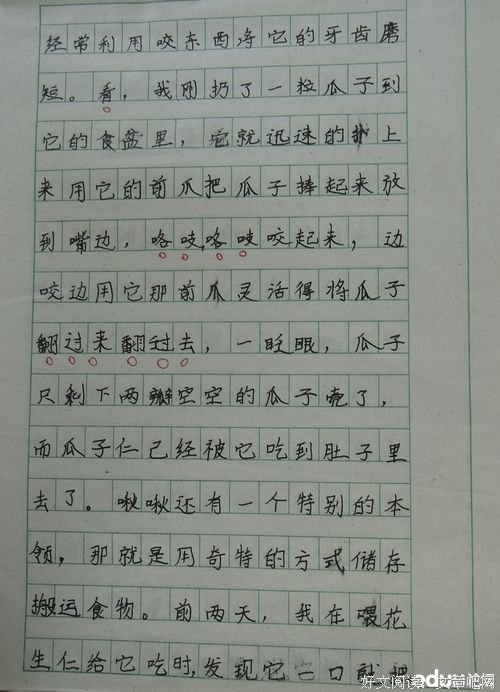 经常利用咬东西,将它的牙齿磨
短。看，我刚扔了一粒瓜子到
它的食盆里，它就迅速的扑上
来用它的前爪把瓜子捧起来放
到嘴边，咯吱,咯吱咬起来，边
咬边用它那前爪灵活得将瓜子
翻过来翻过去，一眨眼，瓜子
只剩下两瓣空空的瓜子壳了，
而瓜子仁已经被它吃到肚子里
去了。啾啾还有一个特别的本
领，那就是用奇特的方式储存
搬运食物。前两天，我在喂花
生仁给它吃时,发现它一口就把
好文阅读